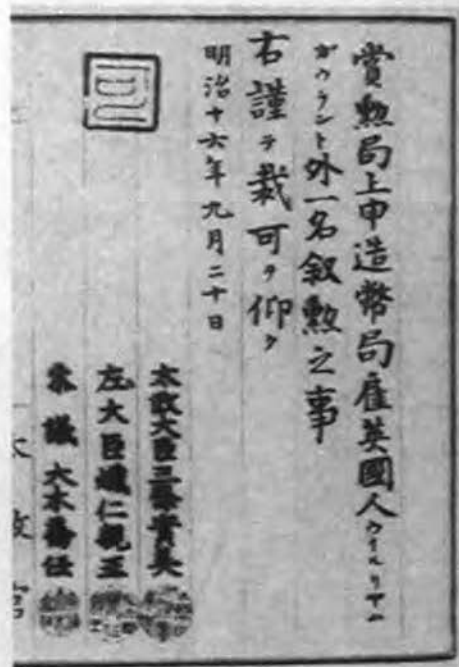 賞勲局上申造幣局雇英國人ウイルリアム
ガウラント外一名叙勲之事
右謹テ裁可ヲ仰ク
明治十六年九月二十日
可
太政大臣三條實美
左大臣熾仁親王
参議大木喬任
太政官